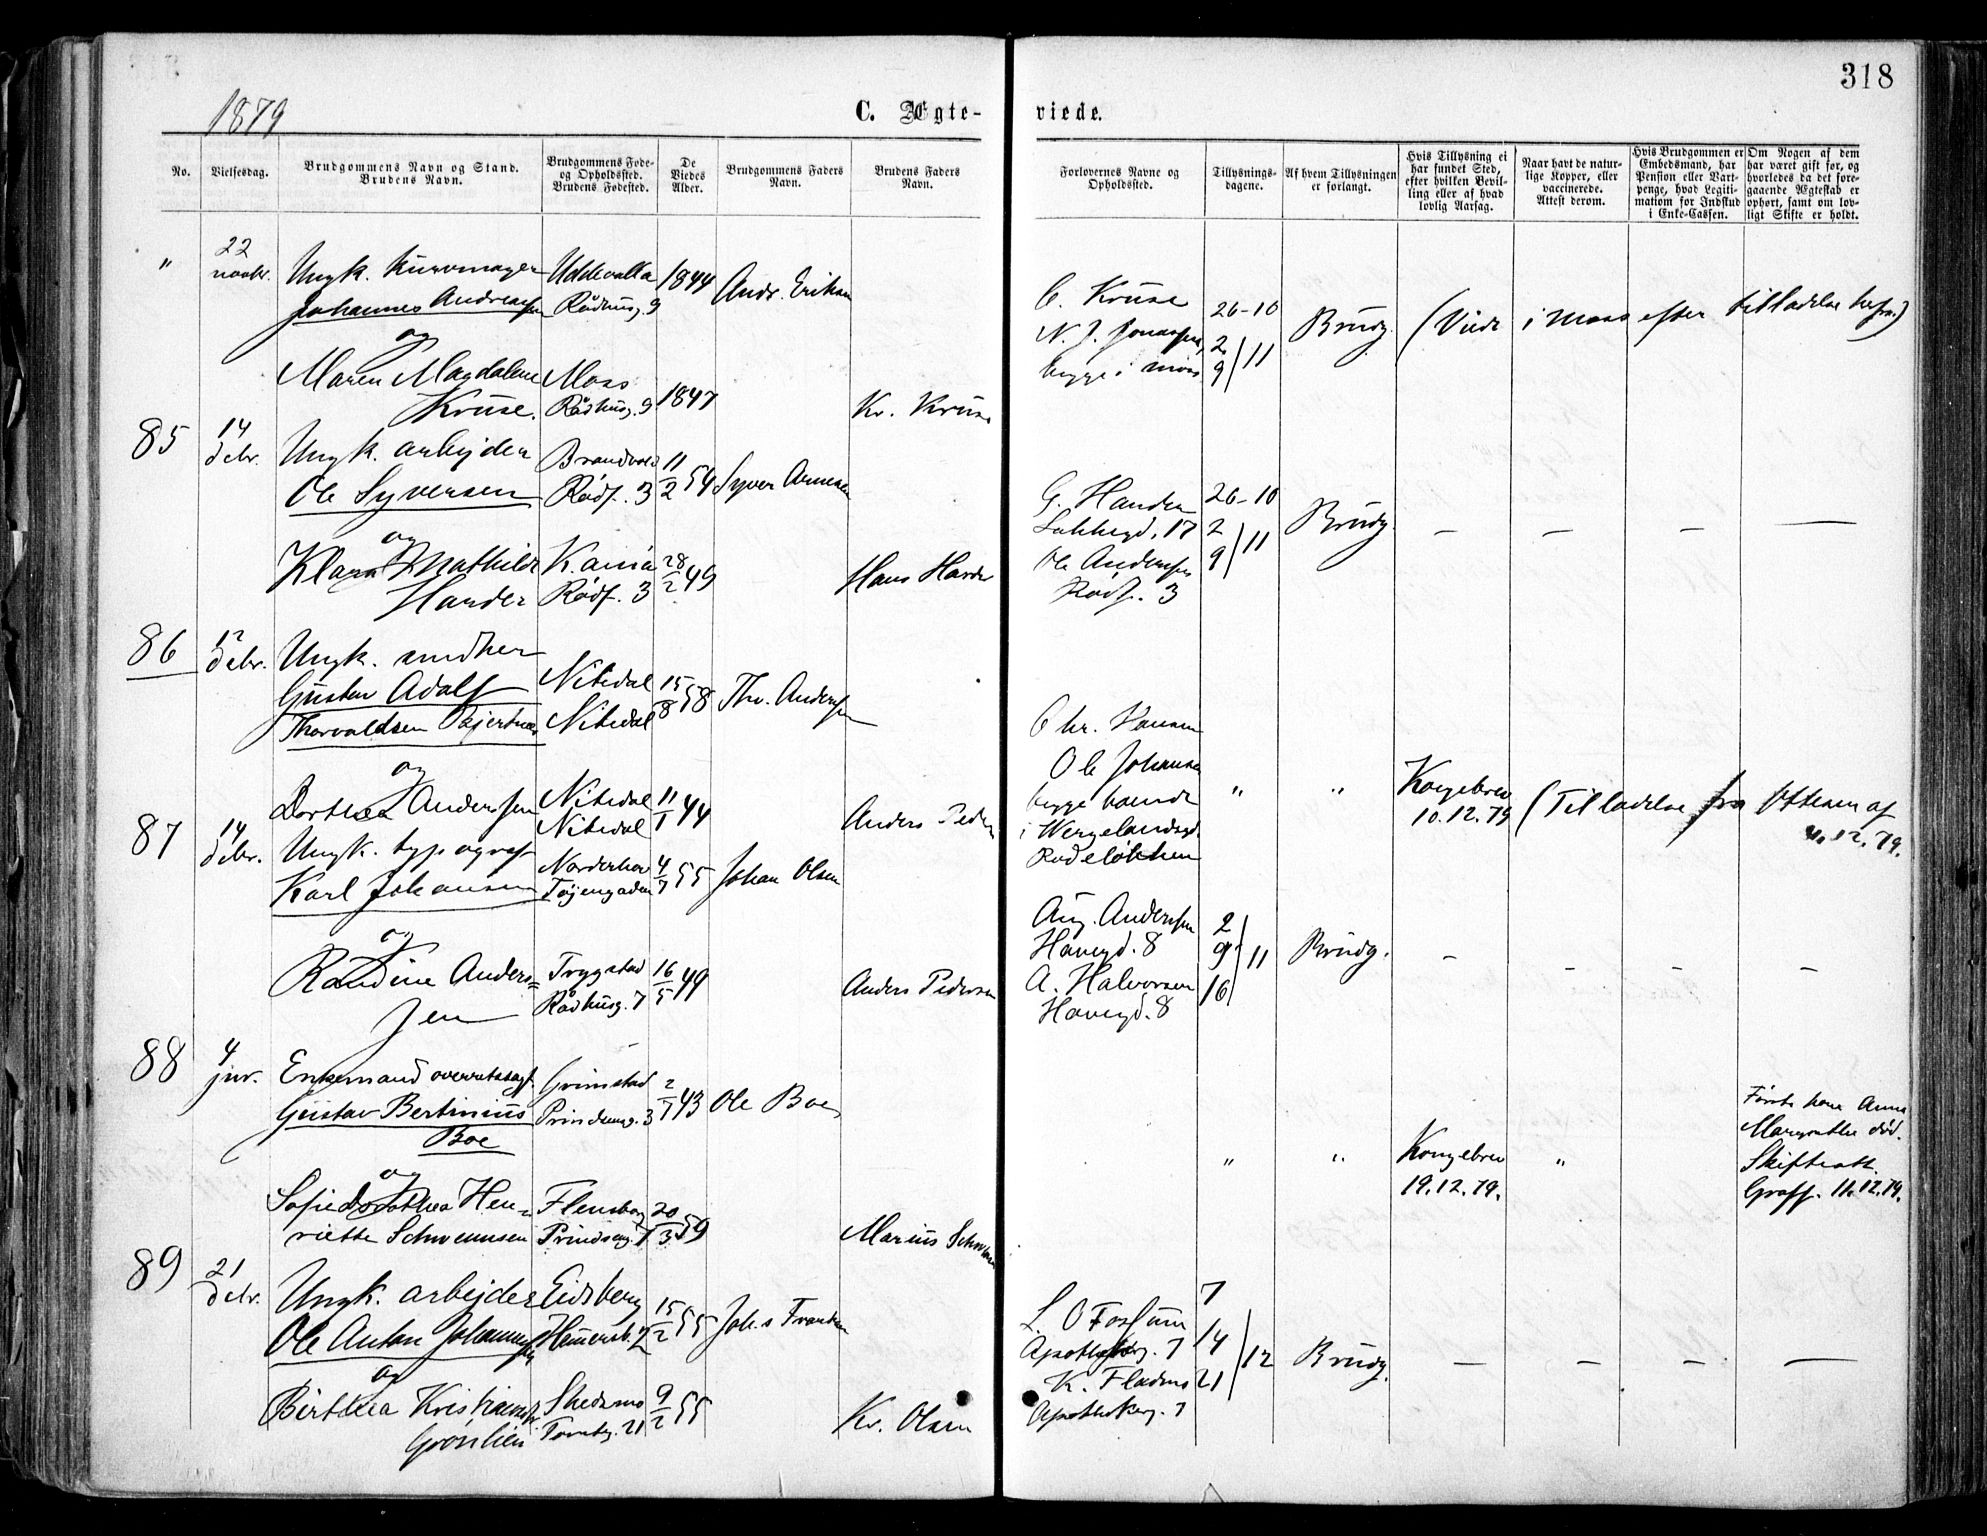 318
1879
C. Ægte-
viede.
No.
Vielsesdag.
Brudgommens Navn og Stand.
Brudens Navn.
Brudgommens Føde-
og Opholdssted.
Brudens Fødested.
De
Viedes
Alder.
Brudgommens Faders
Navn.
Brudens Faders
Navn.
Forlovernes Navne og
Opholdssted.
Tillysnings-
dagene.
Af hvem Tillysningen
er forlangt.
Hvis Tillysning ei
har fundet Sted,
efter hvilken Bevil-
ling eller af hvad
lovlig Aarsag.
Naar havt de natur-
lige Kopper, eller
vaccinerede.
Attest derom.
Hvis Brudgommen er
Embedsmand, har
Pension eller Vart-
penge, hvad Legiti-
mation for Indskud
i Enke-Cassen.
Om Nogen af dem
har været gift før, og
hvorledes da det fore-
gaaende Ægteskab er
ophørt, samt om lov-
ligt Skifte er holdt.
"
22
novbr.
Ungk. kurvmager
Johannes Andreassen
og
Maren Magdalene
Kruse.
Uddevalla
Rådhusg. 9
Moss
Rådhusg. 9
1844
1847
Andr. Eriksen
Kr. Kruse
C. Kruse
N. J. Jonassen,
begge i Moss
26-10
2
9/11
Brudg.
(Viede i Moss efter tilladelse herfra)
85
14
debr.
Ungk. arbejder
Ole Syversen
og
Klara Mathilde
Harder
Brandvold
Rødf. 3
K.ania
Rødf. 3
11/2 54
28/2 49
Syver Arnesen
Hans Harder
G. Handen
Lakkegd. 17
Ole Anderssen
Rødf. 3
26-10
2
9/11
Brudg.
— — — —
86
12
debr.
Ungk. snedker
Gustav Adolf
Thorvaldsen Bjertnæs
og
Dorthea Anderssen
Nitedal
Nitedal
Nitedal
Nitedal
15/8 58
11/1 44
Thv. Anderssen
Anders Peders
Chr. Hansen
Ole Johansen
begge boende
i Wergelandsgd.
Rodeløkken
"
"
Kongebrev
10.12.79
(Tilladelse fra Ottesen af
11.12.79.
87
14
debr.
Ungk. typograf
Karl Johansen
og
Randine Anders=
sen
Norderhov
Tøjengaden
Trygstad
Rådhusg. 7
4/7 55
16/5 49
Johan Olsen
Anders Pedersen
Aug. Anderssen
Havegd. 8
A. Halvorsen
Havegd. 8
2
9/11
16
Brudg.
— — — —
88
4
jnr.
Enkemand overretssagf.
Gustav Bertinius
Boe
og
Sofie Dorothea Hen-
riette Schwennsen
Grimstad
Prindsensg. 3
Flensborg
Prindseng. 7
2/7 43
20/3 59
Ole Boe
Marius Schwennsen
"
"
Kongebrev
19.12.79.
"
Første kone Anna
Margrethe død.
Skifteatt.
Graff. 11.12.79.
89
21
debr.
Ungk. arbejder
Ole Anton Johannessen
og
Birthea Kristiansen
Grønlien
Eidsberg
Skedsmo
Torvtg. 21
15/2 55
9/2 55
Joh.s Frantsen
Kr. Olsen
L. O Fossum
Apothekerg. 7
K. Fladmo
Apothekerg. 7
7
14
21/12
Brudg.
— — — —